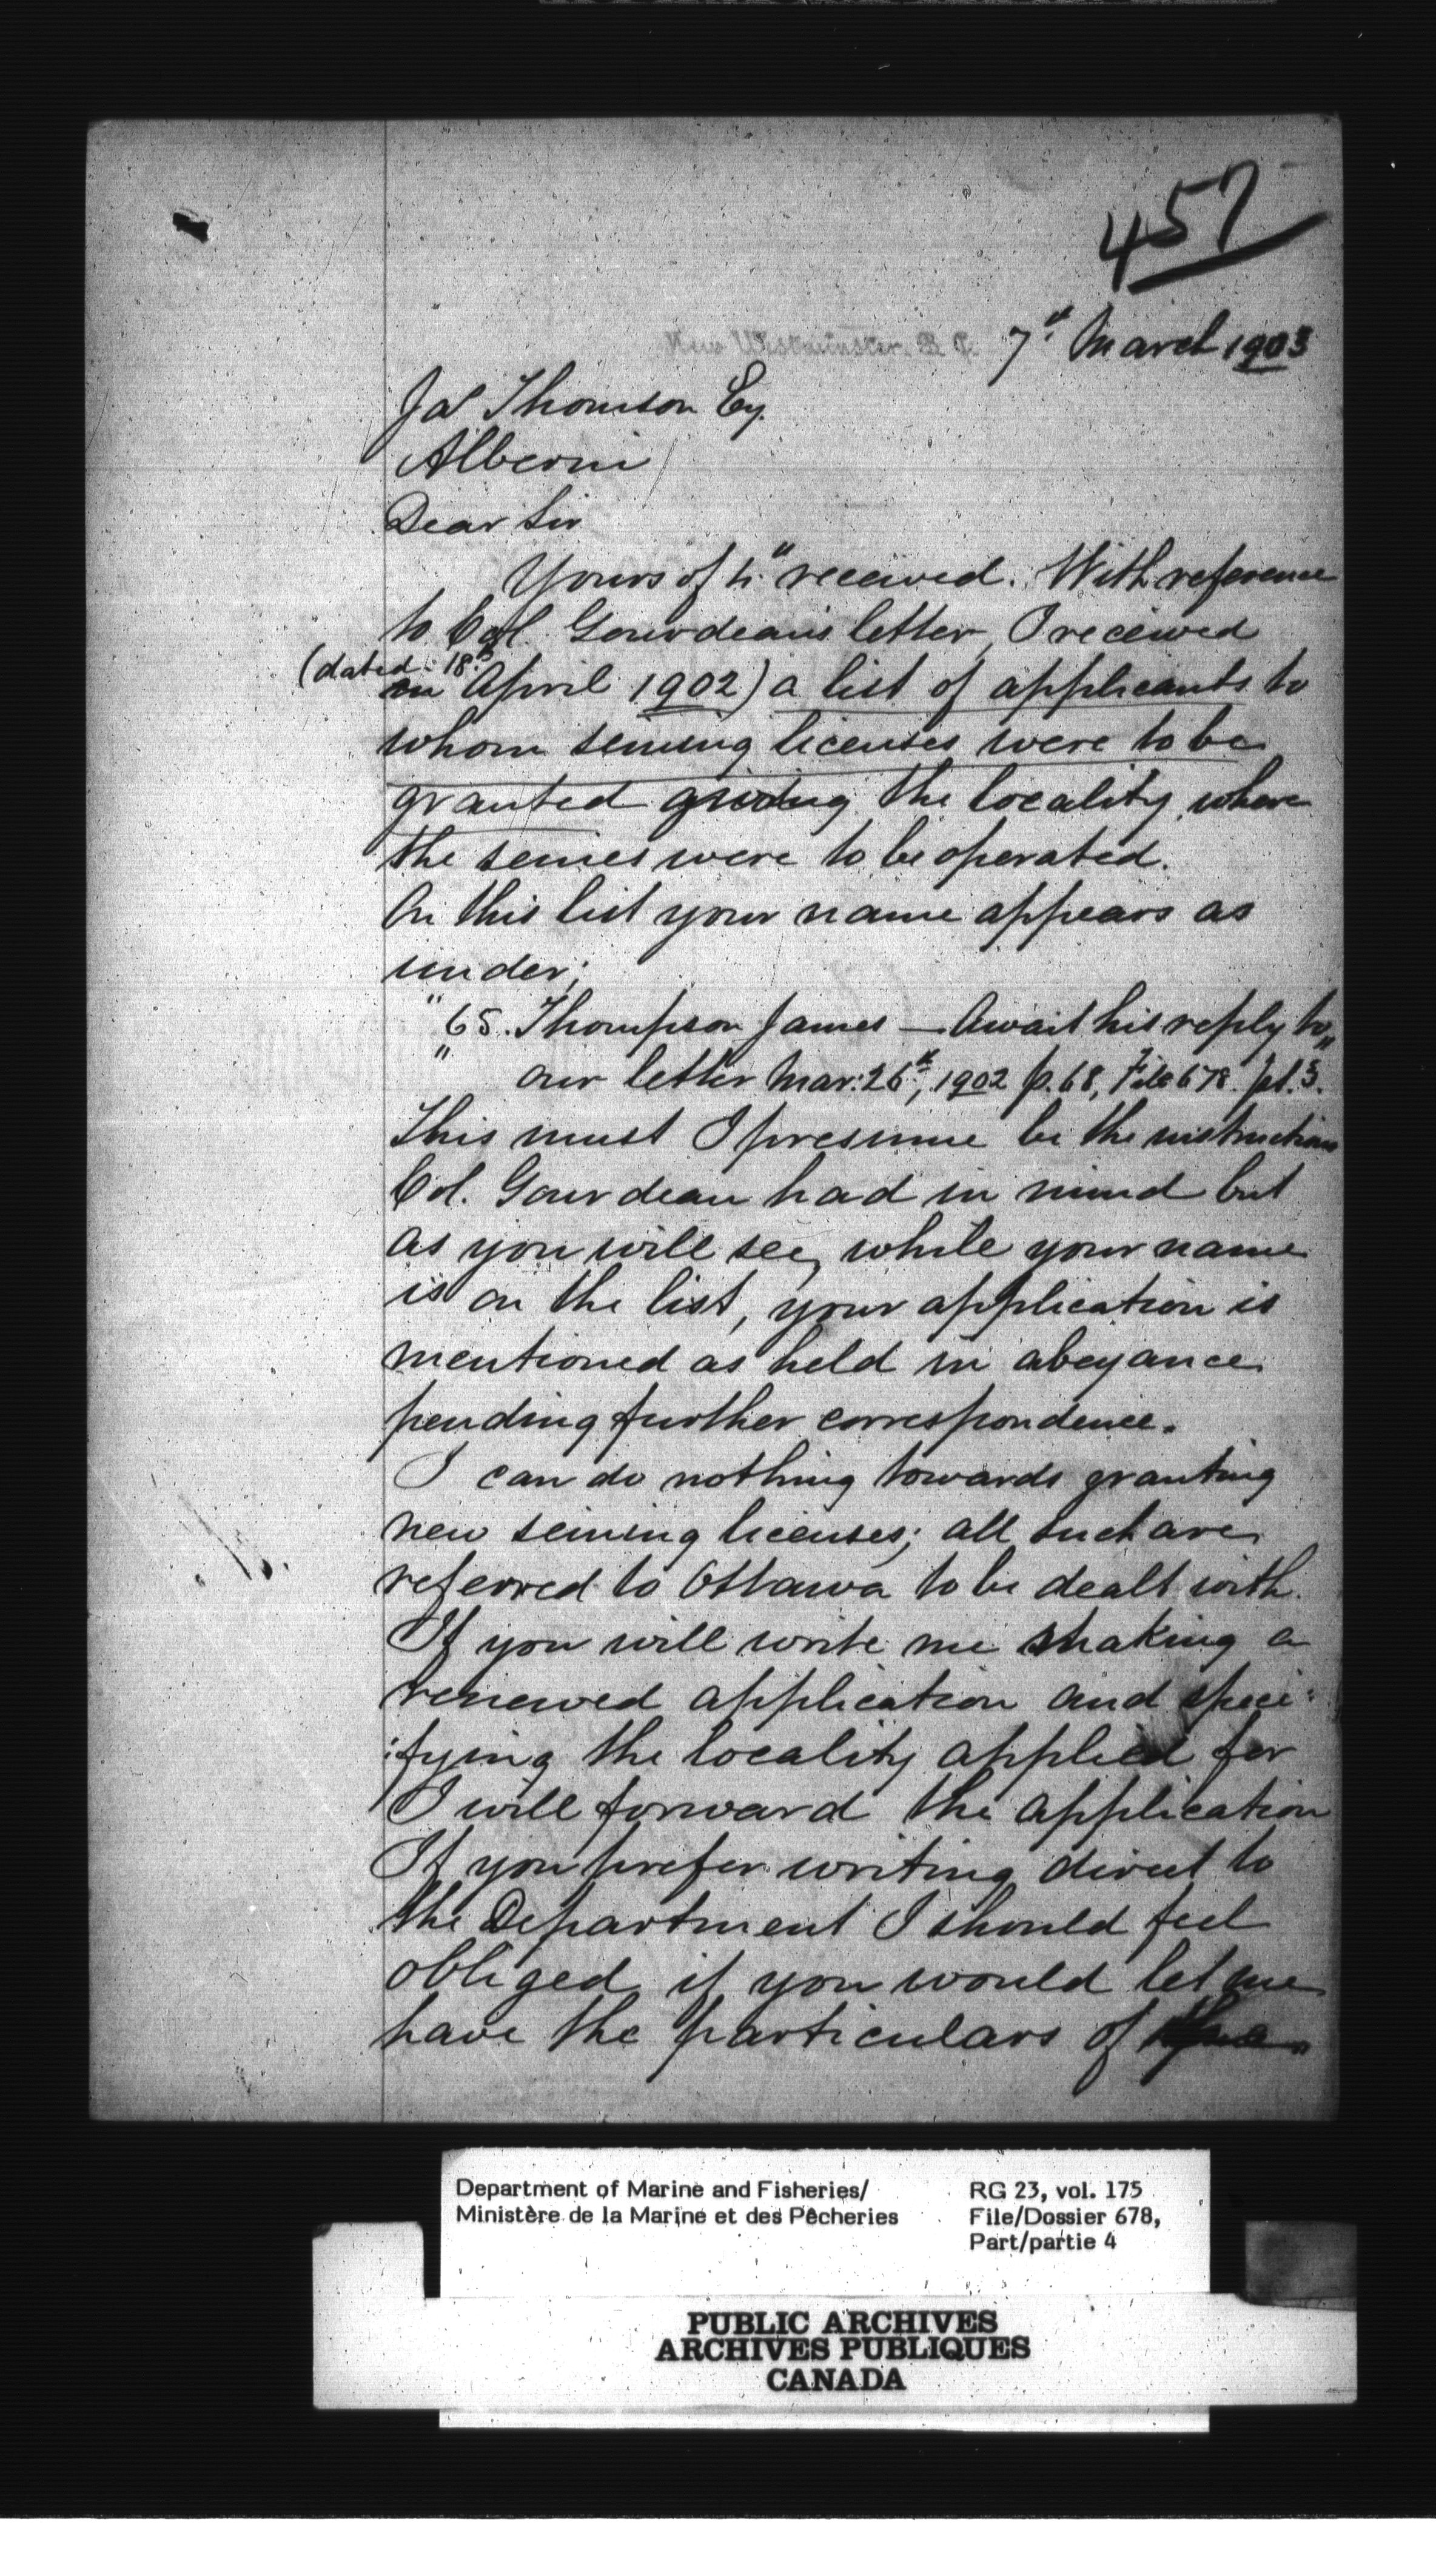 457
New Westminster, B.C. 7th March 1903
Jas Thomson Esq.
Alberni
Dear Sir
Yours of 4th received. With reference
to Col. Gourdeau's letter, I received
(dated 18th
April 1902) a list of applicants to
whom seining licenses were to be
granted giving the locality where
the seines were to be operated.
On this list your name appears as
under;
"65. Thompson James — Await his reply to
" our letter Mar: 26th, 1902 p. 68, File 678 pt. 3."
This must I presume be the instruction
Col. Gourdeau had in mind but
as you will see, while your name
is on the list, your application is
mentioned as held in abeyance
pending further correspondence.
I can do nothing towards granting
new seining licenses; all such are
referred to Ottawa to be dealt with.
If you will write me making a
renewed application and speci:
:fying the locality applied for
I will forward the application
If you prefer writing direct to
the Department I should feel
obliged if you would let me
have the particulars of
Department of Marine and Fisheries/
Ministère de la Marine et des Pêcheries
RG 23, vol. 175
File/Dossier 678,
Part/partie 4
PUBLIC ARCHIVES
ARCHIVES PUBLIQUES
CANADA